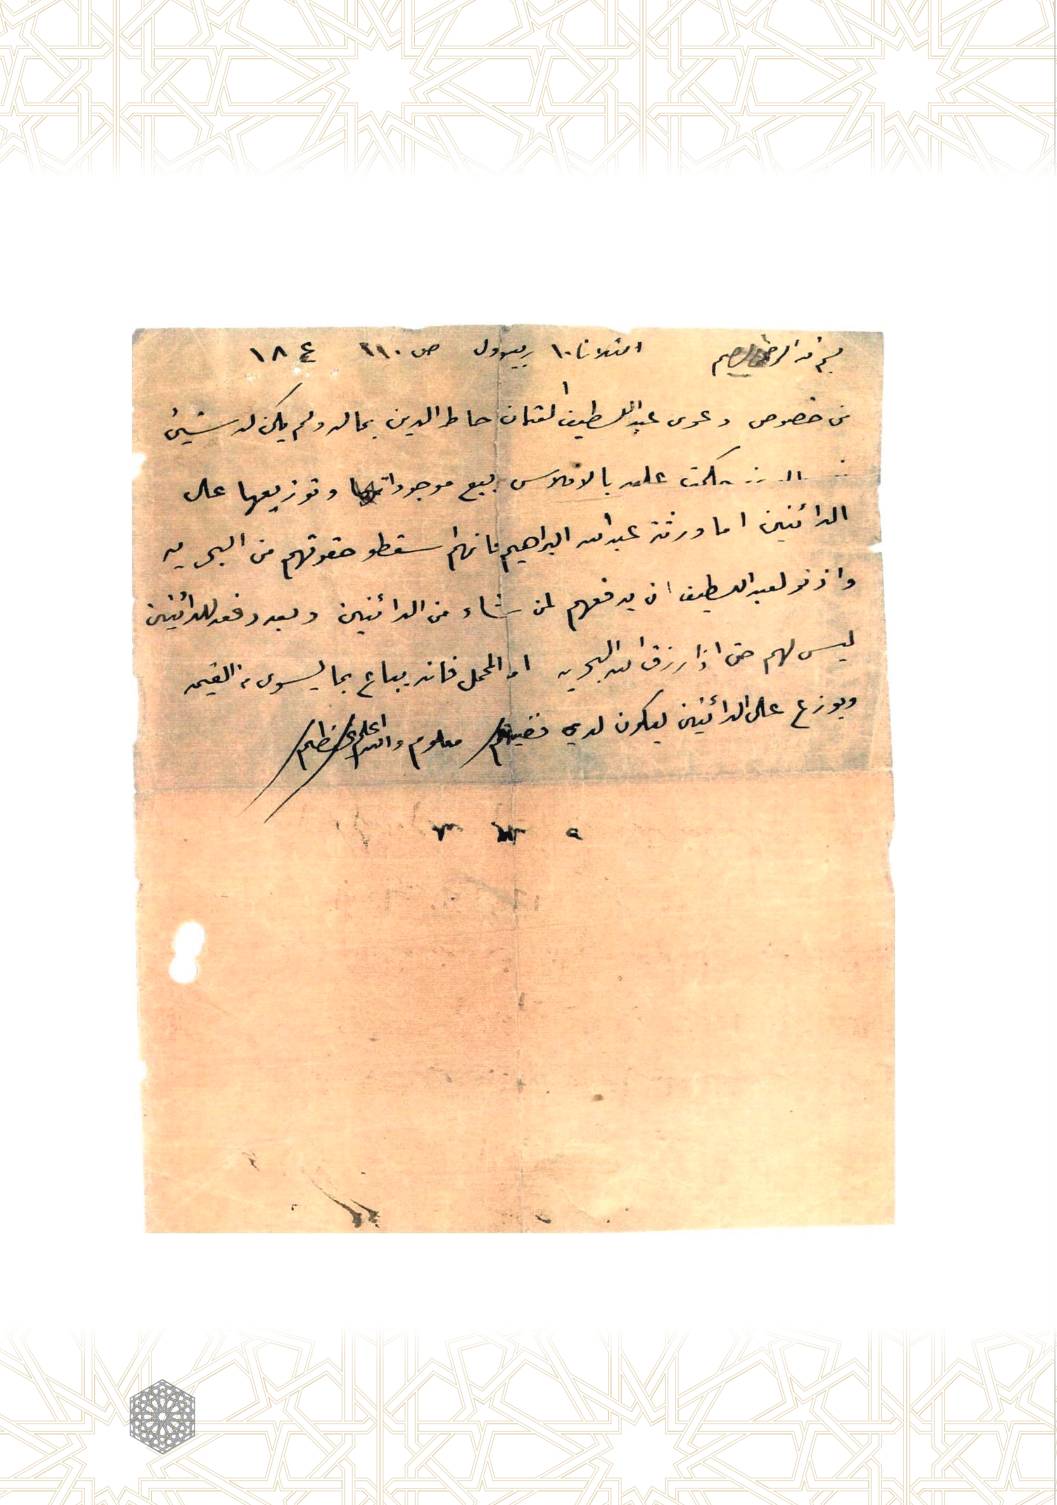 بسم الله الرحمن الرحيم الثلاثا ١٠ ربيع اول ص ٢١٠ ع ١٨
من خصوص دعوى عبداللطيف العثمان حاط الدين بماله ولم يكن له شيئ
حكمت عليه بالافلاس ببيع موجوداتها وتوزيعها على
الدائنين اما ورثة عبدالله البراهيم فانهم اسقطو حقوقهم من البحريه
واذنو لعبداللطيف ان يدفعهم لمن شاء من الدائنين وبعد دفعه للدائنين
ليس لهم حق اذا رزق الله البحريه اما المحمل فانه يباع بما يسوى من القيمه
ويوزع على الدائنين ليكون لدي معلوم والله اعلم